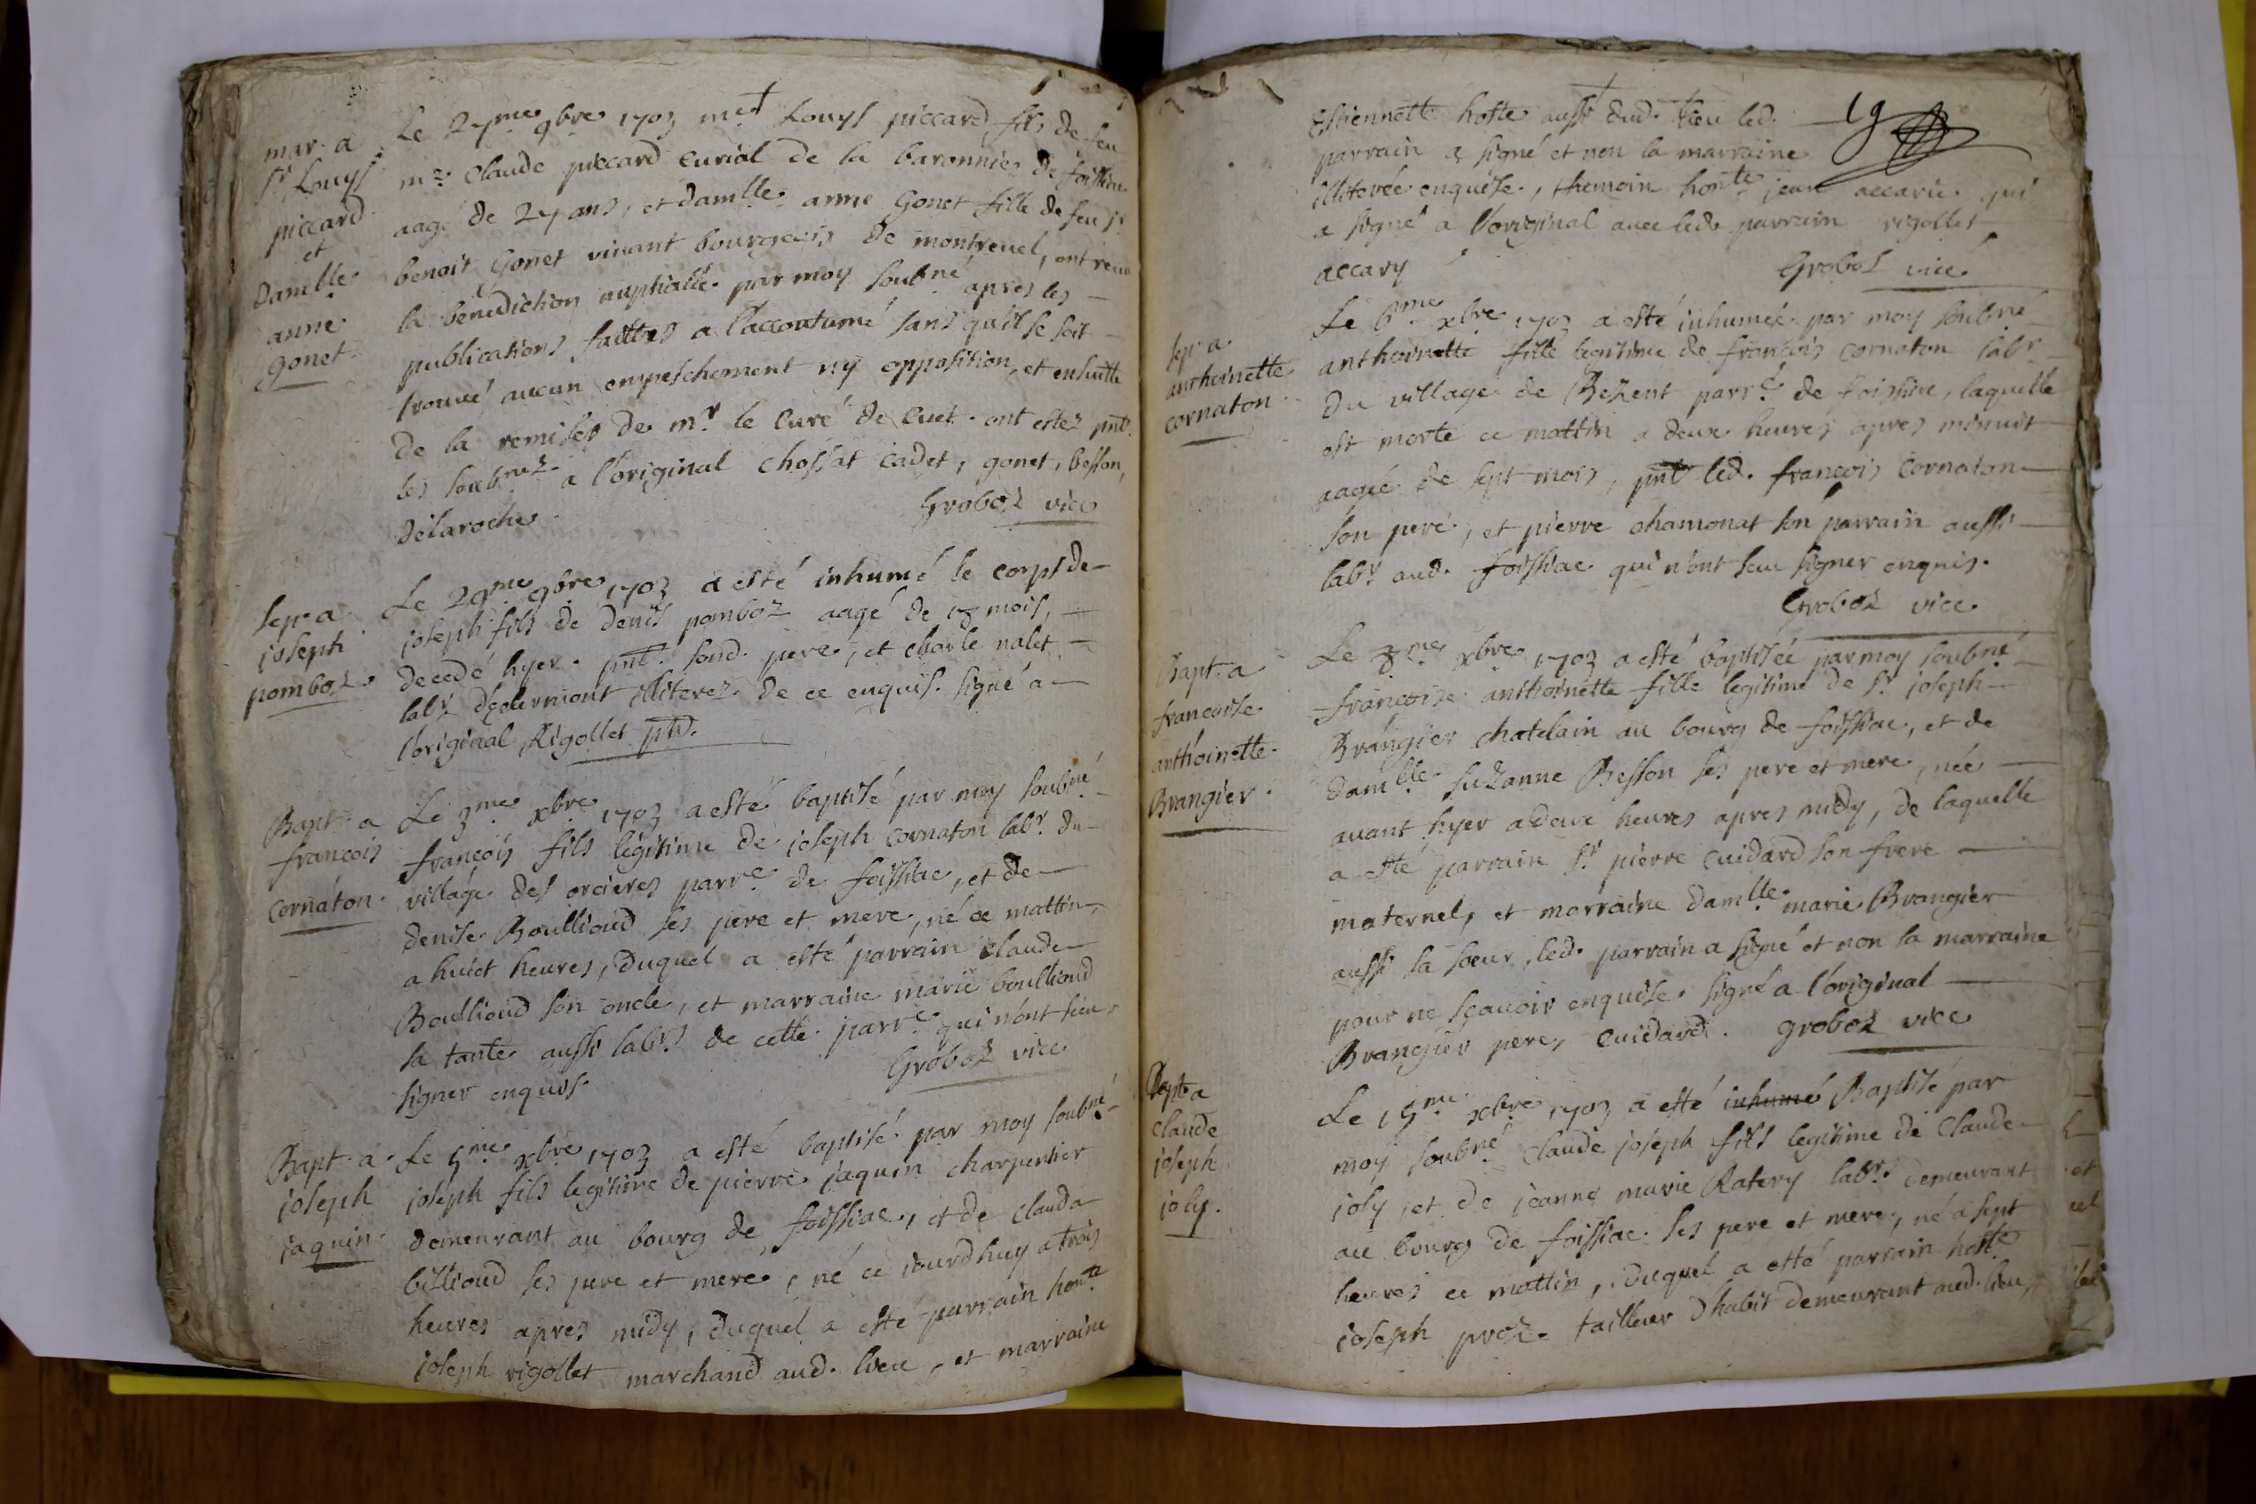 mar. a
Sr Louys
piccard
et
Damlle
anne
gonet
Le 27me 9bre 1703 met Louys piccard fils de feu
mre Claude piccard curial de la baronnie de foissia
aagé de 27 ans, et damlle anne Gonet fille de feu sr
benoit Gonet vivant bourgeois de montrevel, ont receu
la benediction nuptialle par moy soubné apres les
publications faittes a l'accoutumé sans qu'il se soit
trouvé aucun empeschement ny opposition, et ensuitte
de la remise de mr le Curé de Cuet ont estez pnts
les soubnez a l'original chossat cadet, gonet, besson,
Delaroche
Groboz vice
sep. a
joseph
pomboz
Le 29me 9bre 1703 a esté inhumé le corps de
joseph fils de denis pomboz aagé de 18 mois,
decedé hyer pnt. sond. pere, et charle nalet
labr illiterez de ce enquis. signé a
l'original Rigollet
Bapt. a
francois
Cornaton.
Le 3me xbre 1703 a esté baptisé par moy soubné
françois fils legitime de joseph cornaton labr du
village des orcieres parre de foissiac, et de
denise Boullioud ses pere et mere, né ce mattin
a huict heures, duquel a esté parrain claude
Boullioud son oncle, et marraine marie boullioud
sa tante aussi labrs de cette parre qui n'ont sceu
signer enquis.
Groboz vice
Bapt. a
joseph
jaquin.
Le 5me xbre 1703 a esté baptisé par moy soubné
joseph fils legitime de pierre jaquin charpentier
demeurant au bourg de foissiac, et de clauda
billioud ses pere et mere, né ce jourdhuy a trois
heures apres midy, duquel a esté parrain honte
joseph rigollet marchand aud. lieu, et marraine
19
Estiennette hoste aussi dud. lieu led.
parrain a signé et non la marraine
illiterée enquise, themoin honte jean accarie qui
a signé a l'original avec led. parrain rigollet
accary
Groboz vice
sep. a
anthoinette
cornaton.
Le 6me xbre 1703 a esté inhumée par moy soubné
anthoinette fille legitime de françois cornaton labr
du village de Bezent parre de foissiac, laquelle
est morte ce mattin a deux heures apres minuit
aagée de sept mois, pnt led. françois Cornaton
son pere, et pierre chamonat son parrain aussi
labr aud. foissiac qui n'ont sceu signer enquis.
Groboz vice
Bapt. a
francoise
anthoinette
Brangier.
Le 8me xbre 1703 a esté baptisée par moy soubné
françoise anthoinette fille legitime de Sr joseph
Brangier chatelain au bourg de foissiac, et de
damlle suzanne Besson ses pere et mere, née
avant hyer a deux heures apres midy, de laquelle
a esté parrain Sr pierre Cuidard son frere
maternel, et marraine damlle marie Brangier
aussi sa soeur, led. parrain a signé et non la marraine
pour ne sçavoir enquise. signé a l'original
Brangier pere, Cuidard. Groboz vice
Bapt. a
claude
joseph
joly.
Le 15me xbre 1703 a esté inhumé Baptisé par
moy soubné Claude joseph fils legitime de Claude
joly, et de jeanne marie Ratery labrs demeurant
au bourg de foissiac ses pere et mere, né a sept
heures ce mattin, duquel a esté parrain honte
joseph proz tailleur d'habit demeurant aud. lieu,